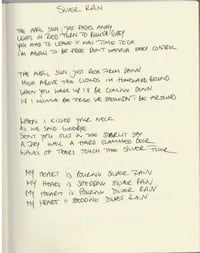 SILVER RAIN
THE APRIL SUN, JUST FADES AWAY
LIGHTS IN RED TURN TO BLUISH GREY
YOU HAD TO LEAVE IT WAS TIME TO GO
I'M ABOUT TO BE FREE DON'T WANNA LOSE CONTROL
THE APRIL SUN JUST
HIGH ABOVE THE CLOUDS I'M HOMEWARD BOUND
WHEN YOU WAKE UP I'LL BE COMING DOWN
IF I WANNA BE TRUE WE SHOULDN'T BE AROUND
WHEN I KISSED YOUR NECK
AS WE SAID GOODBYE
SENT YOU OUT IN THE STARLIT SKY
A DRY WALL A HARD SLAMMED DOOR
WAVES OF TEARS TOUCH THE SILVER FLOOR
MY HEART IS POURING SILVER RAIN
MY HEART IS SHEDDING SILVER RAIN
MY HEART IS POURING SILVER RAIN
MY HEART IS SHEDDING SILVER RAIN